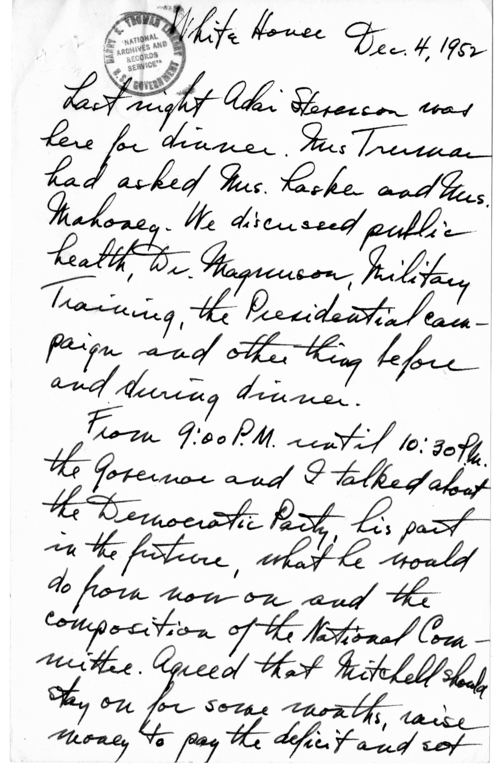 White House
Dec. 4, 1952
HARRY S. TRUMAN LIBRARY
"NATIONAL
ARCHIVES AND
RECORDS
SERVICE"
U.S. GOVERNMENT
Last night Adai Stevenson was
here for dinner. Mrs Truman
had asked Mrs. Lasker and Mrs.
Mahoney. We discussed public
health, Dr. Magnuson, Military
Training, the Presidential cam-
paign and other thing before
and during dinner.
From 9:00 P.M. until 10:30 P.M.
the Governor and I talked about
the Democratic Party, his part
in the future, what he would
do from now on and the
composition of the National Com-
mittee. Agreed that Mitchell should
stay on for some months, raise
money to pay the deficit and set